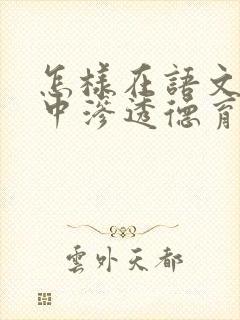 怎樣在語文
中滲透德育
雲外天都